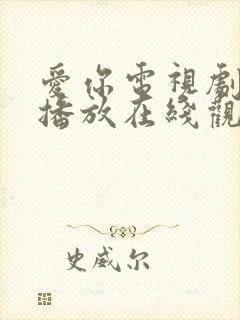 愛你電視劇
播放在綫觀
史威尔